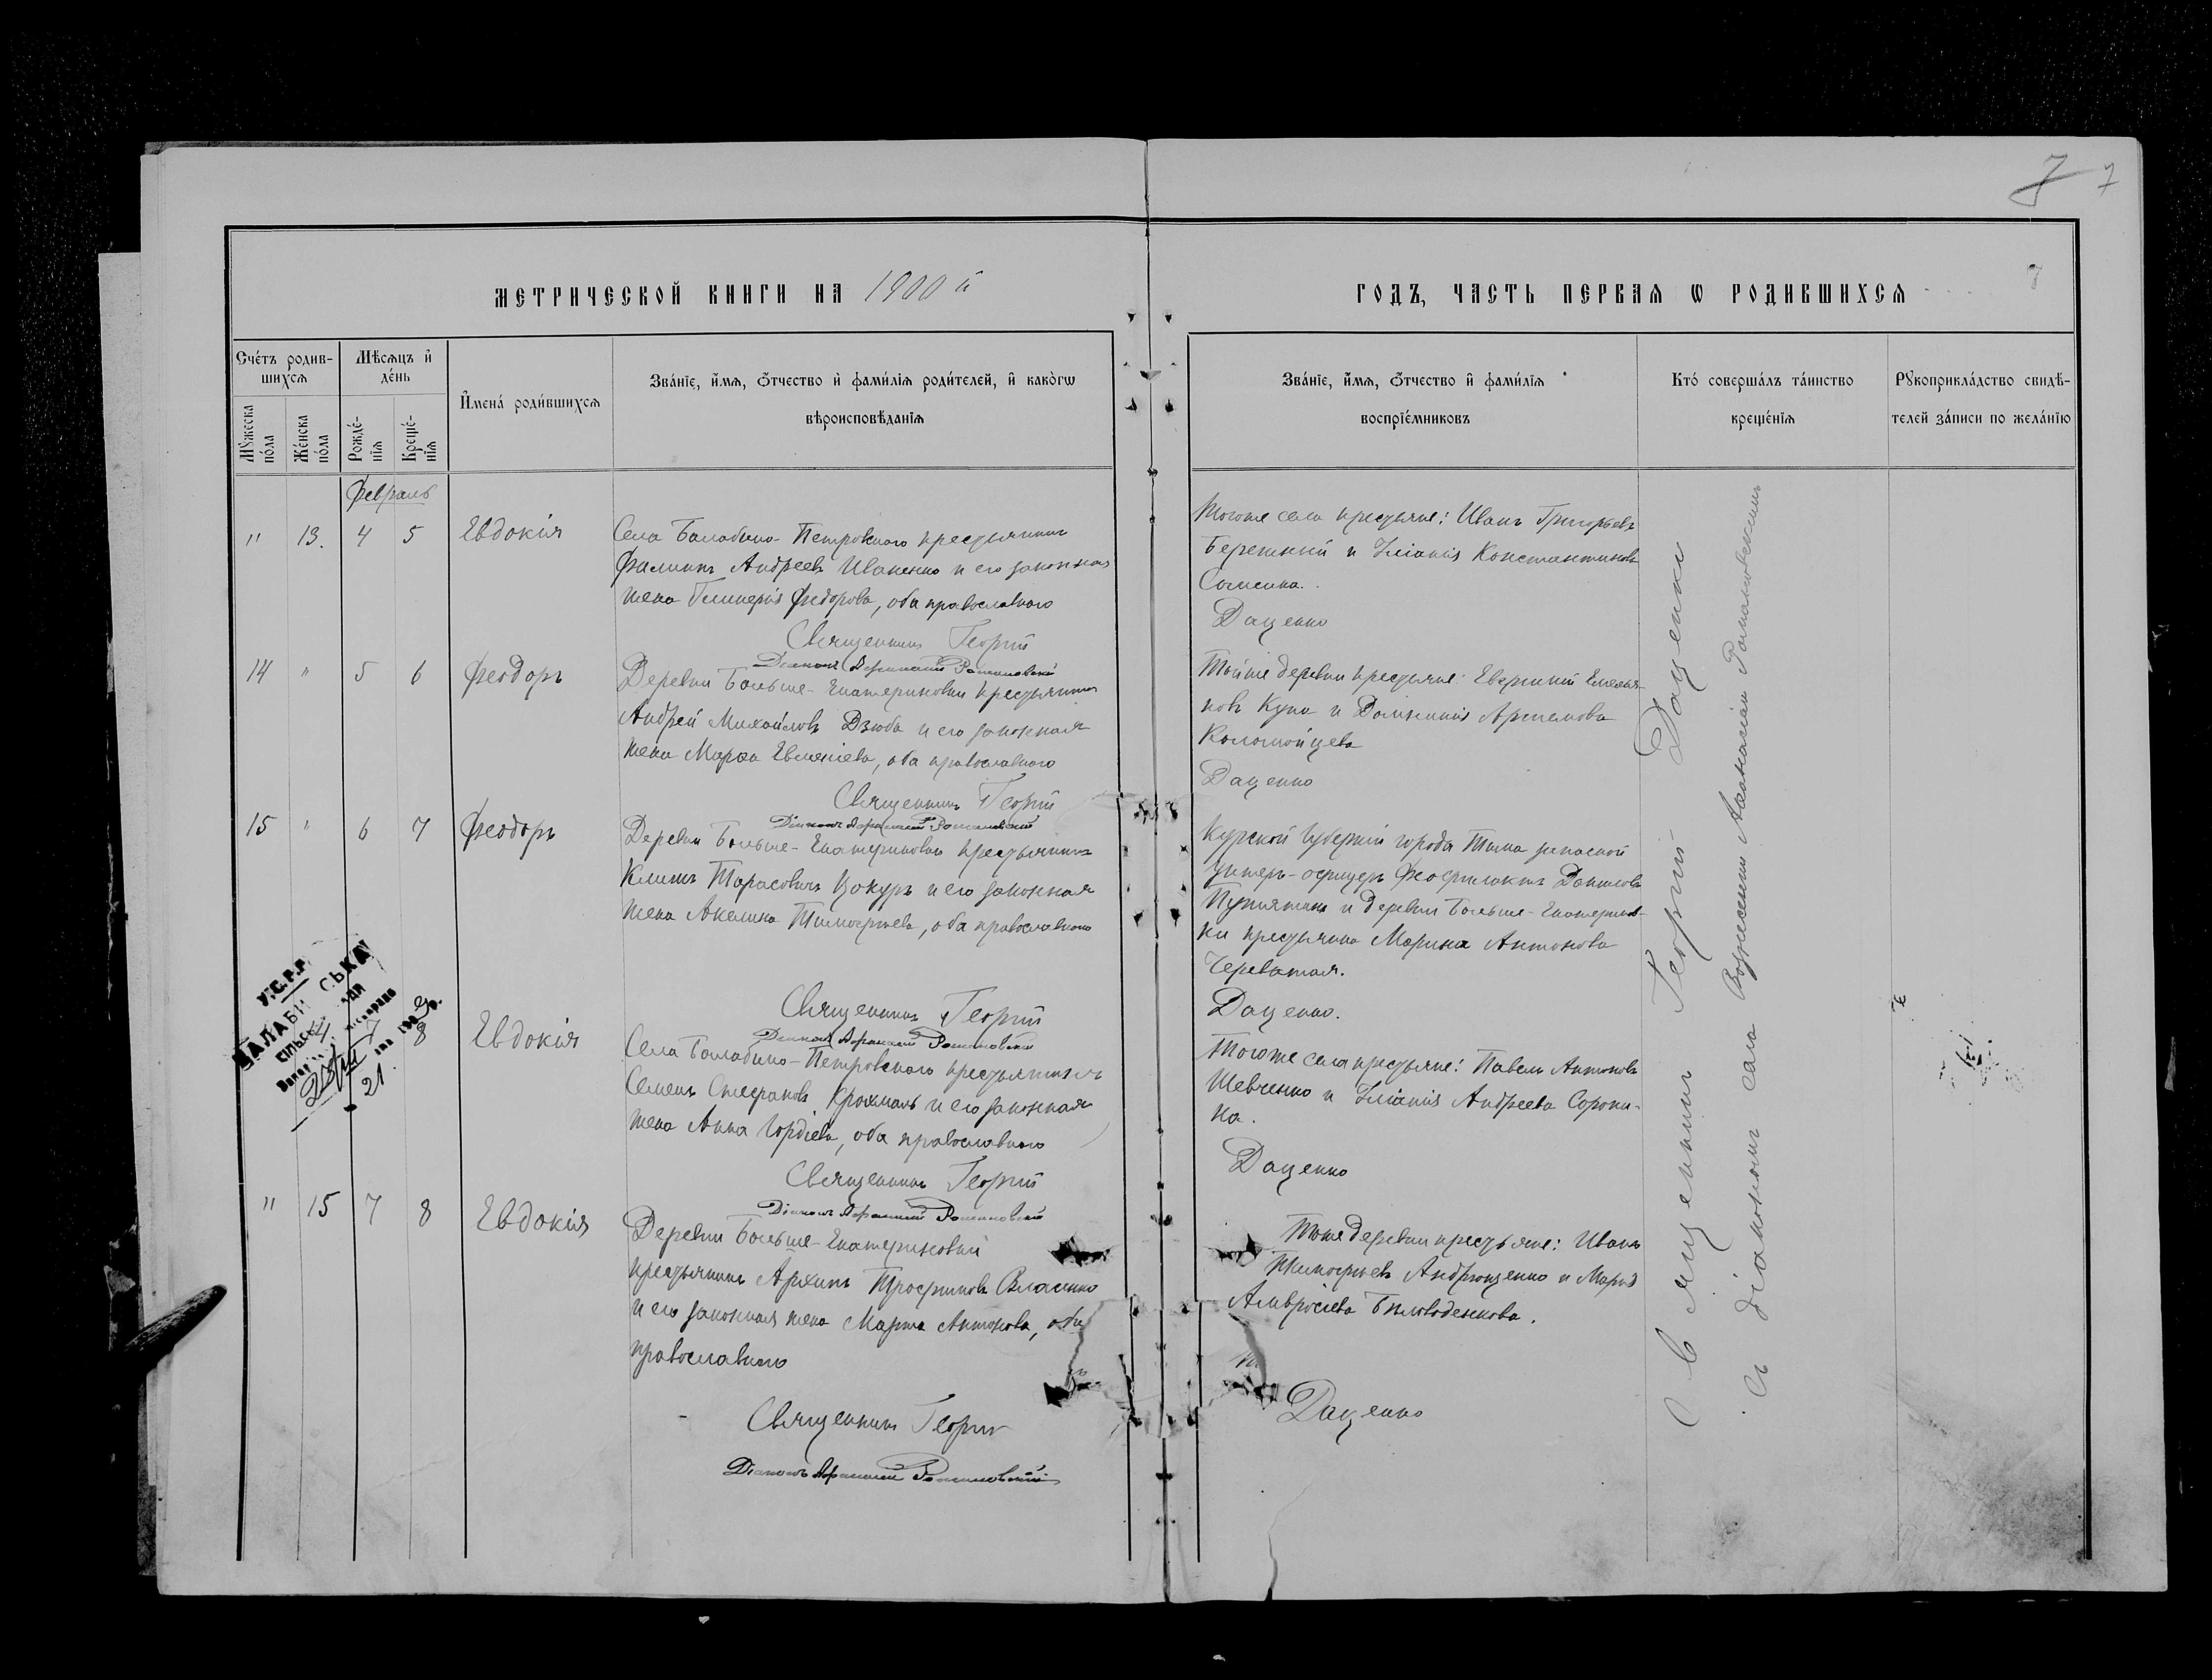 7 7
7
МЕТРИЧЕСКОЙ КНИГИ НА 1900 й
ГОДЪ, ЧАСТЬ ПЕРВАЯ Ѡ РОДИВШИХСЯ
Счéтъ родив-
шихсѧ
Мѣсѧцъ и҆
дéнь
И҆менà роди́вшихсѧ
Звáнїе, и҆́мѧ, ѻ҆́тчество и҆ фами́лїѧ роди́телей, и҆ какóгѡ
вѣроисповѣ́данїѧ
Мꙋ́жеска
пóла
Жéнска
пóла
Рождé-
нїѧ
Крещé-
нїѧ
Звáнїе, и҆́мѧ, ѻ҆́тчество и҆ фами́лїѧ
воспрїéмниковъ
Ктó совершáлъ тáинство
крещéнїѧ
Рꙋкоприклáдство свидѣ́-
телей зáписи по желáнїю
Февраль
" 13. 4 5 Евдокія
Села Балабино-Петровскаго крестьянинъ
Филиппъ Андреевъ Иваненко и его законная
жена Гликерія Федорова, оба православнаго
Священникъ Георгій
Діаконъ Афанасій Романовскій
Тогоже села крестьяне: Иванъ Григорьевъ
Бережный и Іуліанія Константинова
Даценко
14 " 5 6 Феодоръ
Деревни Больше-Екатериновки крестьянинъ
Андрей Михайловъ Дзюба и его законная
жена Марфа Евменіева, оба православнаго
Священникъ Георгій
Діаконъ Афанасій Романовскій
Тойже деревни крестьяне: Евгеній Емелья-
новъ Купа и Домникія Артемова
Коломойцева
Даценко
15 " 6 7 Феодоръ
Деревни Больше-Екатериновки крестьянинъ
Климъ Тарасовичъ Цокуръ и его законная
жена Акелина Тимофеева, оба православнаго
Священникъ Георгій
Діаконъ Афанасій Романовскій
Курской губерніи города Тима запасной
унтеръ-офицеръ Феофилактъ Даниловъ
и деревни Больше-Екатеринов-
ки крестьянка Марина Антонова
Череватая.
Даценко.
У.С.Р.Р.
7 8 Евдокія
Села Балабино-Петровскаго крестьянинъ
Семенъ Стефановъ Крохмаль и его законная
жена Анна Гордіева, оба православнаго
Священникъ Георгій
Діаконъ Афанасій Романовскій
Тогоже села крестьяне: Павелъ Антоновъ
Шевченко и Іуліанія Андреева Сороки-
на.
Даценко
" 15 7 8 Евдокія
Деревни Больше-Екатериновки
крестьянинъ Архипъ Трофимовъ Власенко
и его законная жена Марта Антонова, оба
православнаго
Священникъ Георгій
Діаконъ Афанасій Романовскій
Тоже деревни крестьяне: Иванъ
Тимофеевъ Андрющенко и Марія
Амвросіева Биловоденкова.
Даценко
Священникъ Георгій Даценко
съ діакономъ села Вознесенки Афанасіемъ Романовскимъ